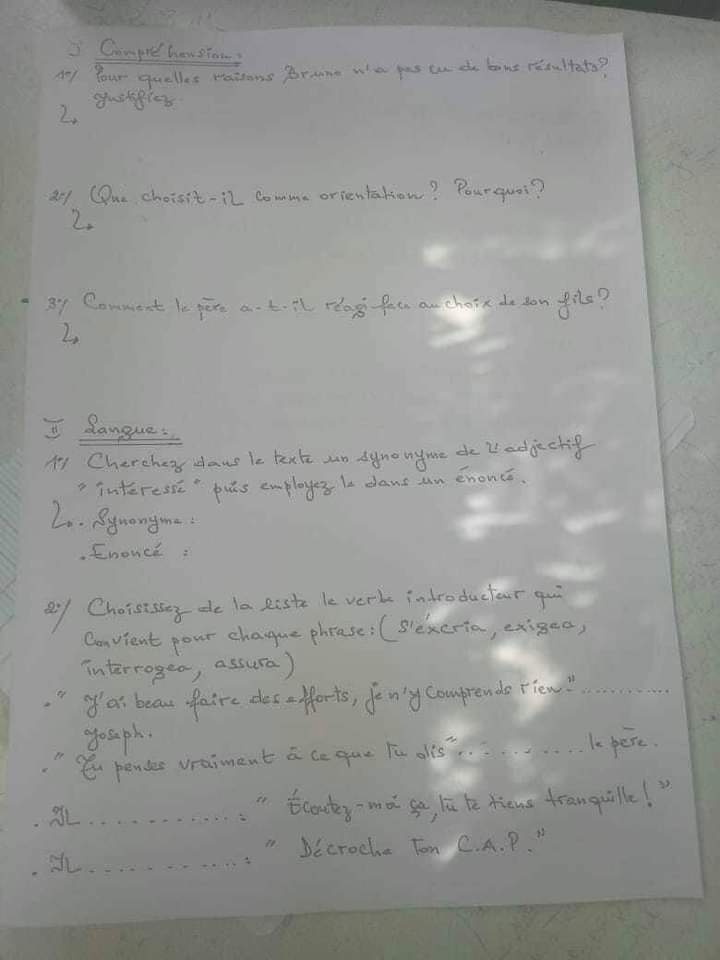 I Compréhension :
1°/ Pour quelles raisons Bruno n'a pas eu de bons résultats?
Justifiez.
2°/ Que choisit-il comme orientation? Pourquoi?
3°/ Comment le père a-t-il réagi face au choix de son fils?
II Langue :
1°/ Cherchez dans le texte un synonyme de l'adjectif
"intéressé" puis employez le dans un énoncé.
. Synonyme :
. Enoncé :
2°/ Choisissez de la liste le verbe introducteur qui
convient pour chaque phrase : (s'éxcria, exigea,
interrogea, assura)
. " J'ai beau faire des efforts, je n'y comprends rien." ...........
Joseph.
. " Tu penses vraiment à ce que tu dis" ........... le père.
. Il ............ : " Écoutez-moi ça, tu te tiens tranquille ! "
. Il ............ : " Décroche ton C.A.P. "